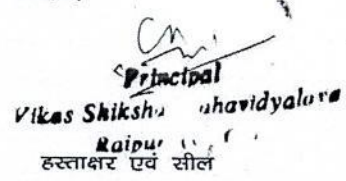 Principal
Vikas Shiksha ahavidyalara
Raipur
हस्ताक्षर एवं सील